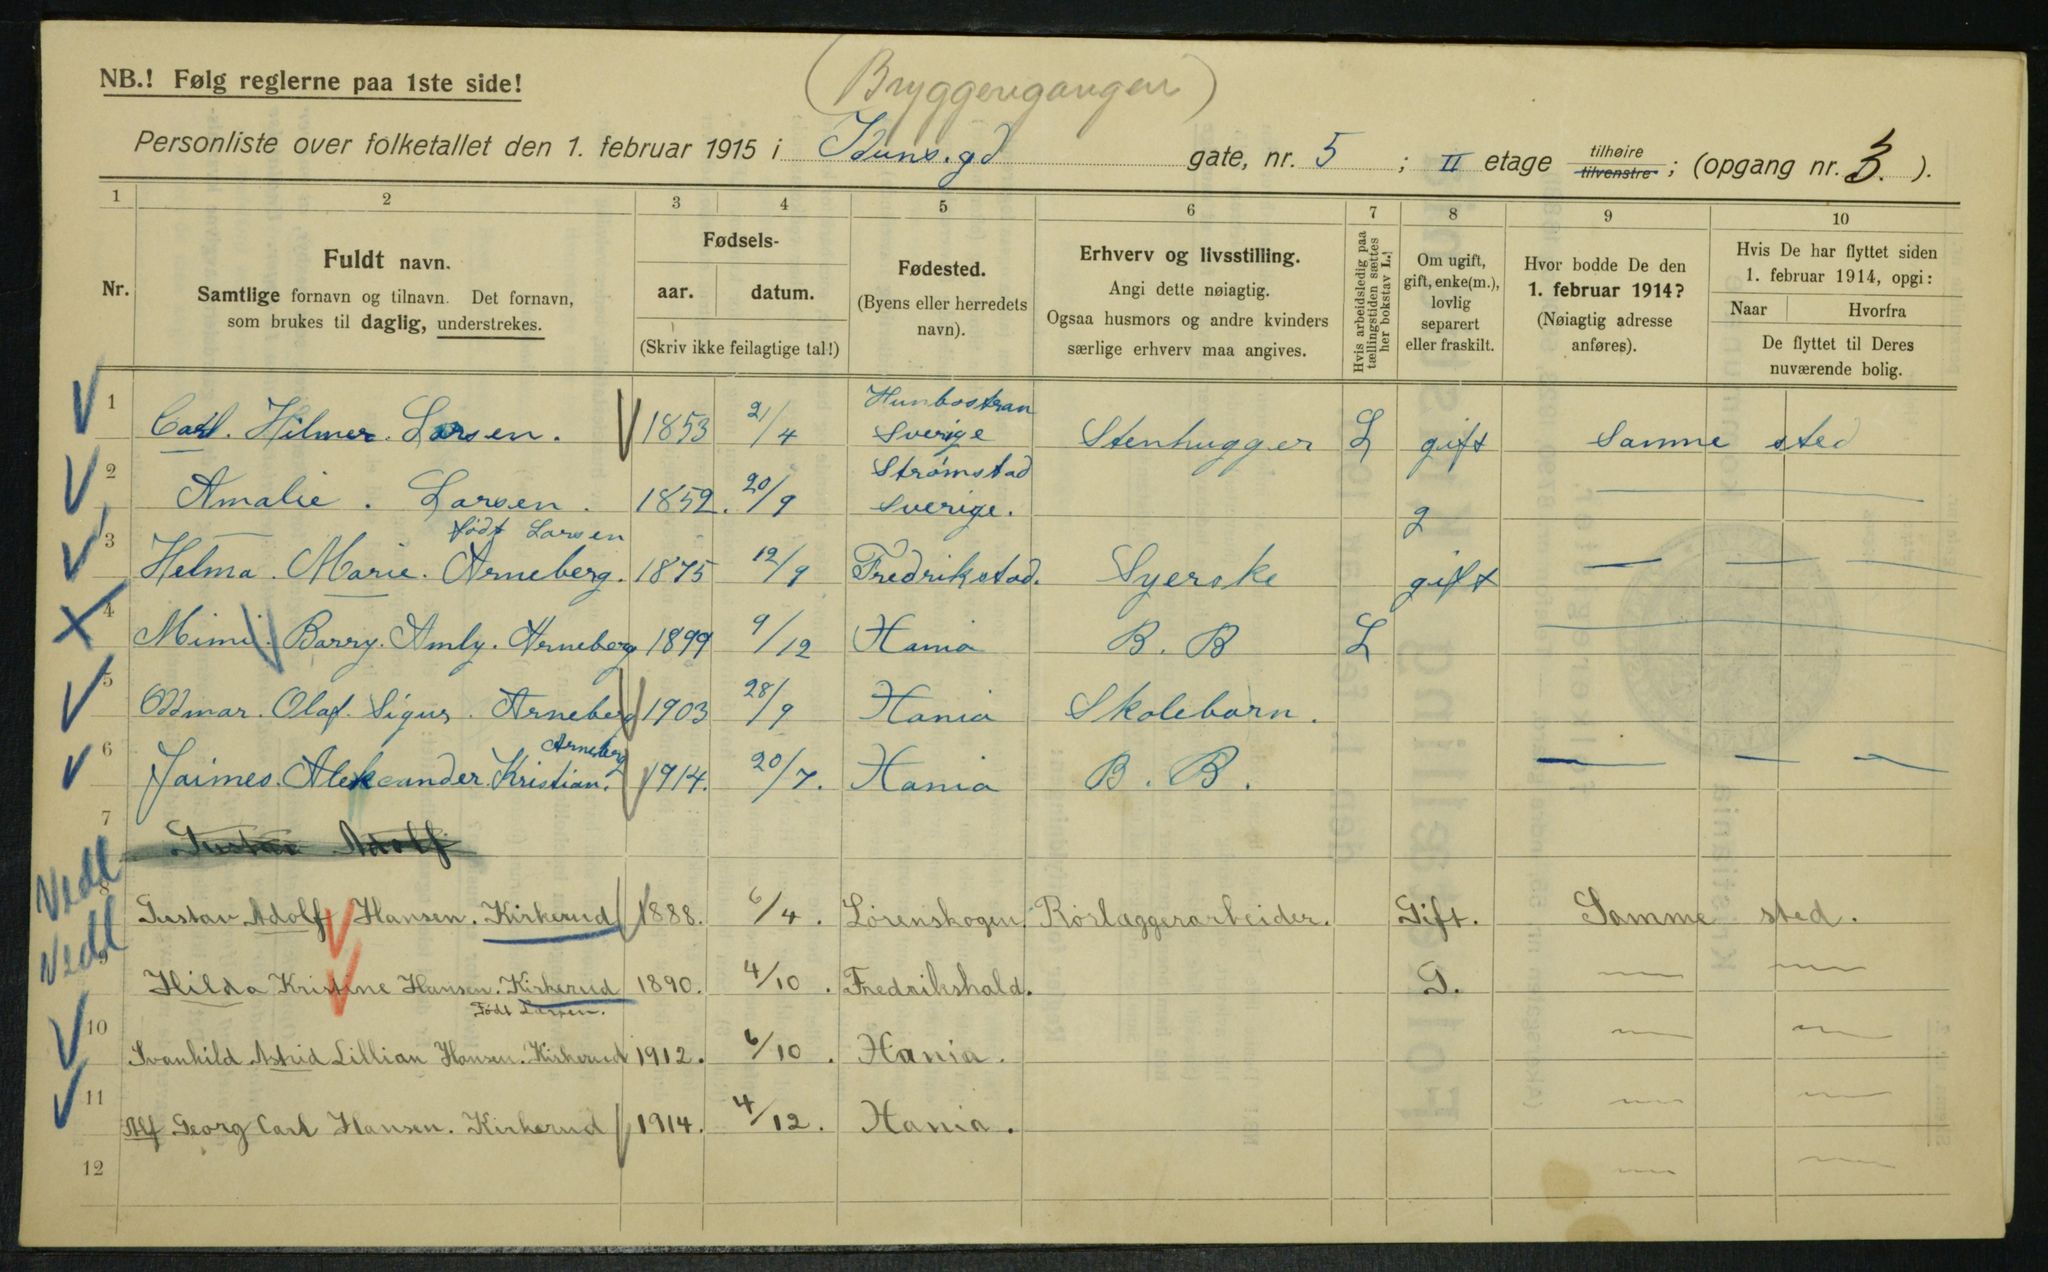 (Bryggerigangen)
NB.! Følg reglerne paa 1ste side!
Personliste over folketallet den 1. februar 1915 i Iduns.gd gate, nr. 5 ; II etage tilhøire tilvenstre ; (opgang nr. 3. ).
1 2 3 4 5 6 7 8 9 10
Nr.
Fuldt navn.
Samtlige fornavn og tilnavn. Det fornavn,
som brukes til daglig, understrekes.
Fødsels-
aar. datum.
(Skriv ikke feilagtige tal!)
Fødested.
(Byens eller herredets
navn).
Erhverv og livsstilling.
Angi dette nøiagtig.
Ogsaa husmors og andre kvinders
særlige erhverv maa angives.
Hvis arbeidsledig paa
tællingstiden sættes
her bokstav L.!
Om ugift,
gift, enke(m.),
lovlig
separert
eller fraskilt.
Hvor bodde De den
1. februar 1914?
(Nøiagtig adresse
anføres).
Hvis De har flyttet siden
1. februar 1914, opgi:
Naar Hvorfra
De flyttet til Deres
nuværende bolig.
1 Carl. Hilmer. Larsen. 1853 21/4 Hunbostran Sverige Stenhugger L gift Samme sted
2 Amalie. Larsen. 1852. 20/9 Strømstad Sverige. g
3 Helma. Marie. Arneberg. født Larsen 1875 12/9 Fredrikstad. Syerske — gift — — —
4 Mimi. Barry. Amly. Arneberg 1899 9/12 Kania B. B L
5 Oddmar. Olaf. Sigur. Arneberg 1903 28/9 Kania Skolebarn.
6 Jaimes. Aleksander. Kristian. Arneberg 1914. 20/7. Kania B. B. — — —
7 Gustav Adolf
Vedl 8 Gustav Adolf Hansen. Kirkerud 1888. 6/4. Lørenskogen Rørlæggerarbeider. Gift. Samme sted.
Vedl 9 Hilda Kristine Hansen. Kirkerud Født Larsen. 1890. 4/10. Fredrikshald. G. — —
10 Svanhild Astrid Lillian Hansen. Kirkerud 1912. 6/10. Kania. — —
11 Alf Georg Carl Hansen. Kirkerud 1914. 4/12. Kania. — —
12 — —